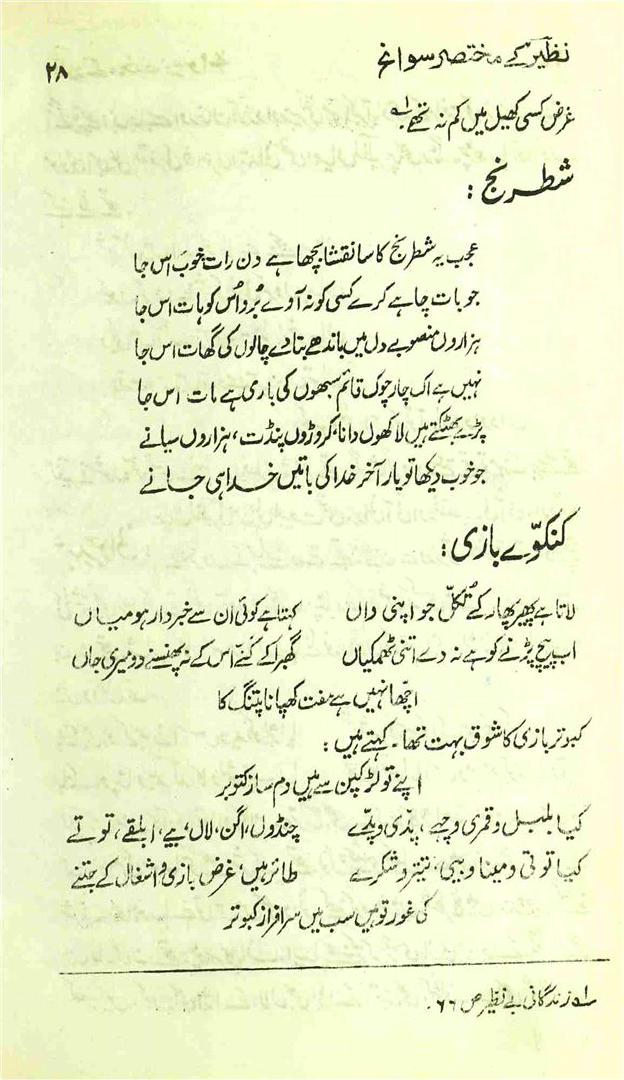 نظیر کے مختصر سوانح
۲۸
غرض کسی کھیل میں کم نہ تھے لہ
شطرنج :
عجب یہ شطرنج کا سا نقشا بچھا ہے دن رات خوب اس جا
جو بات چاہے کرے کسی کو نہ آوے بُرد اُس کو ہات اس جا
ہزاروں منصوبے دل میں باندھے بتا دے چالوں کی گھات اس جا
نہیں ہے اک چار چوک قائم سبھوں کی باری ہے مات اس جا
پڑے بھٹکتے ہیں لاکھوں دانا، کروڑوں پنڈت، ہزاروں سیانے
جو خوب دیکھا تو یار آخر خدا کی باتیں خدا ہی جانے
کنکوّے بازی :
لاتا ہے پھیر پھار کے تُکلّ جو اپنی واں کہتا ہے کوئی ان سے خبردار ہو میاں
اب پیچ پڑنے کو ہے نہ دے اتنی ٹھمکیاں گھبرا کے کنّے اس کے نہ پھنسنے دو میری جاں
اچھا نہیں ہے مفت کھپانا پتنگ کا
کبوتر بازی کا شوق بہت تھا۔ کہتے ہیں :
اپنے تو لڑکپن سے ہیں دم ساز کبوتر
کیا بلبل و قمری و چہے، پدّی و پدّے چنڈول، اگن، لال، بیے، ابلقے، توتے
کیا توتی و مینا و بیی، تیتر و شکرے طائر ہیں، غرض بازی و اشغال کے جتنے
کی غور تو ہیں سب میں سرافراز کبوتر
لہ زندگانی بے نظیر ص ۶۶۔